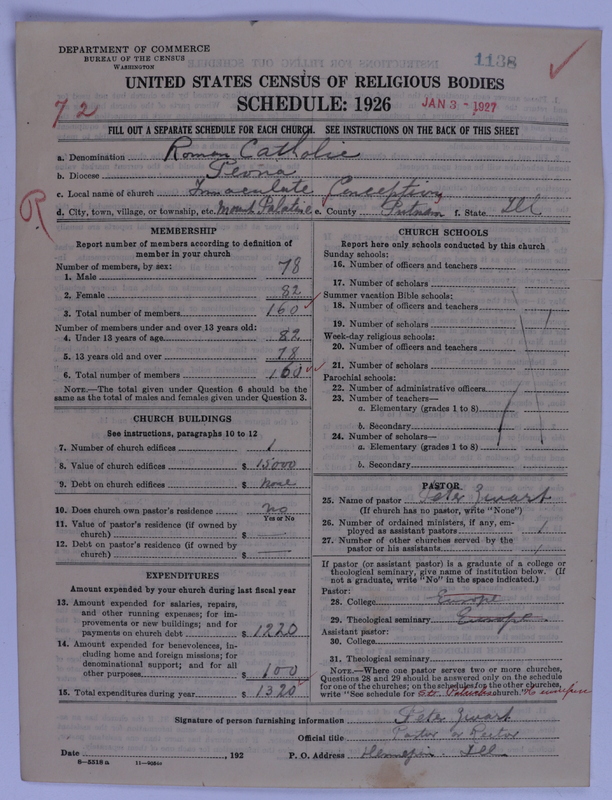 DEPARTMENT OF COMMERCE
BUREAU OF THE CENSUS
WASHINGTON
1138
UNITED STATES CENSUS OF RELIGIOUS BODIES
SCHEDULE: 1926
JAN 3 - 1927
72
FILL OUT A SEPARATE SCHEDULE FOR EACH CHURCH. SEE INSTRUCTIONS ON THE BACK OF THIS SHEET
a. Denomination Roman Catholic
b. Diocese Peoria
c. Local name of church Immaculate Conception
R
d. City, town, village, or township, etc. Mount Palatine e. County Putnam f. State Ill
MEMBERSHIP
Report number of members according to definition of
member in your church
Number of members, by sex:
1. Male 78
2. Female 82
3. Total number of members 160
Number of members under and over 13 years old:
4. Under 13 years of age 82
5. 13 years old and over 78
6. Total number of members 160
NOTE.—The total given under Question 6 should be the
same as the total of males and females given under Question 3.
CHURCH BUILDINGS
See instructions, paragraphs 10 to 12
7. Number of church edifices 1
8. Value of church edifices $ 15000
9. Debt on church edifices $ none
10. Does church own pastor's residence no
Yes or No
11. Value of pastor's residence (if owned by
church) $
12. Debt on pastor's residence (if owned by
church) $
EXPENDITURES
Amount expended by your church during last fiscal year
13. Amount expended for salaries, repairs,
and other running expenses; for im-
provements or new buildings; and for
payments on church debt $ 1220
14. Amount expended for benevolences, in-
cluding home and foreign missions; for
denominational support; and for all
other purposes $ 100
15. Total expenditures during year $ 1320
CHURCH SCHOOLS
Report here only schools conducted by this church
Sunday schools:
16. Number of officers and teachers
17. Number of scholars
Summer vacation Bible schools:
18. Number of officers and teachers
19. Number of scholars
Week-day religious schools:
20. Number of officers and teachers
21. Number of scholars
Parochial schools:
22. Number of administrative officers
23. Number of teachers—
a. Elementary (grades 1 to 8)
b. Secondary
24. Number of scholars—
a. Elementary (grades 1 to 8)
b. Secondary
PASTOR
25. Name of pastor Peter Zwart
(If church has no pastor, write "None")
26. Number of ordained ministers, if any, em-
ployed as assistant pastors
27. Number of other churches served by the
pastor or his assistants
If pastor (or assistant pastor) is a graduate of a college or
theological seminary, give name of institution below. (If
not a graduate, write "No" in the space indicated.)
Pastor:
28. College Europe
29. Theological seminary Europe
Assistant pastor:
30. College
31. Theological seminary
NOTE.—Where one pastor serves two or more churches,
Questions 28 and 29 should be answered only on the schedule
for one of the churches; on the schedules for the other churches,
write "See schedule for St. Patrick's church." Hennepin
Signature of person furnishing information Peter Zwart
Official title Pastor or Rector
Date , 192 P. O. Address Hennepin. Ill
8-5518a